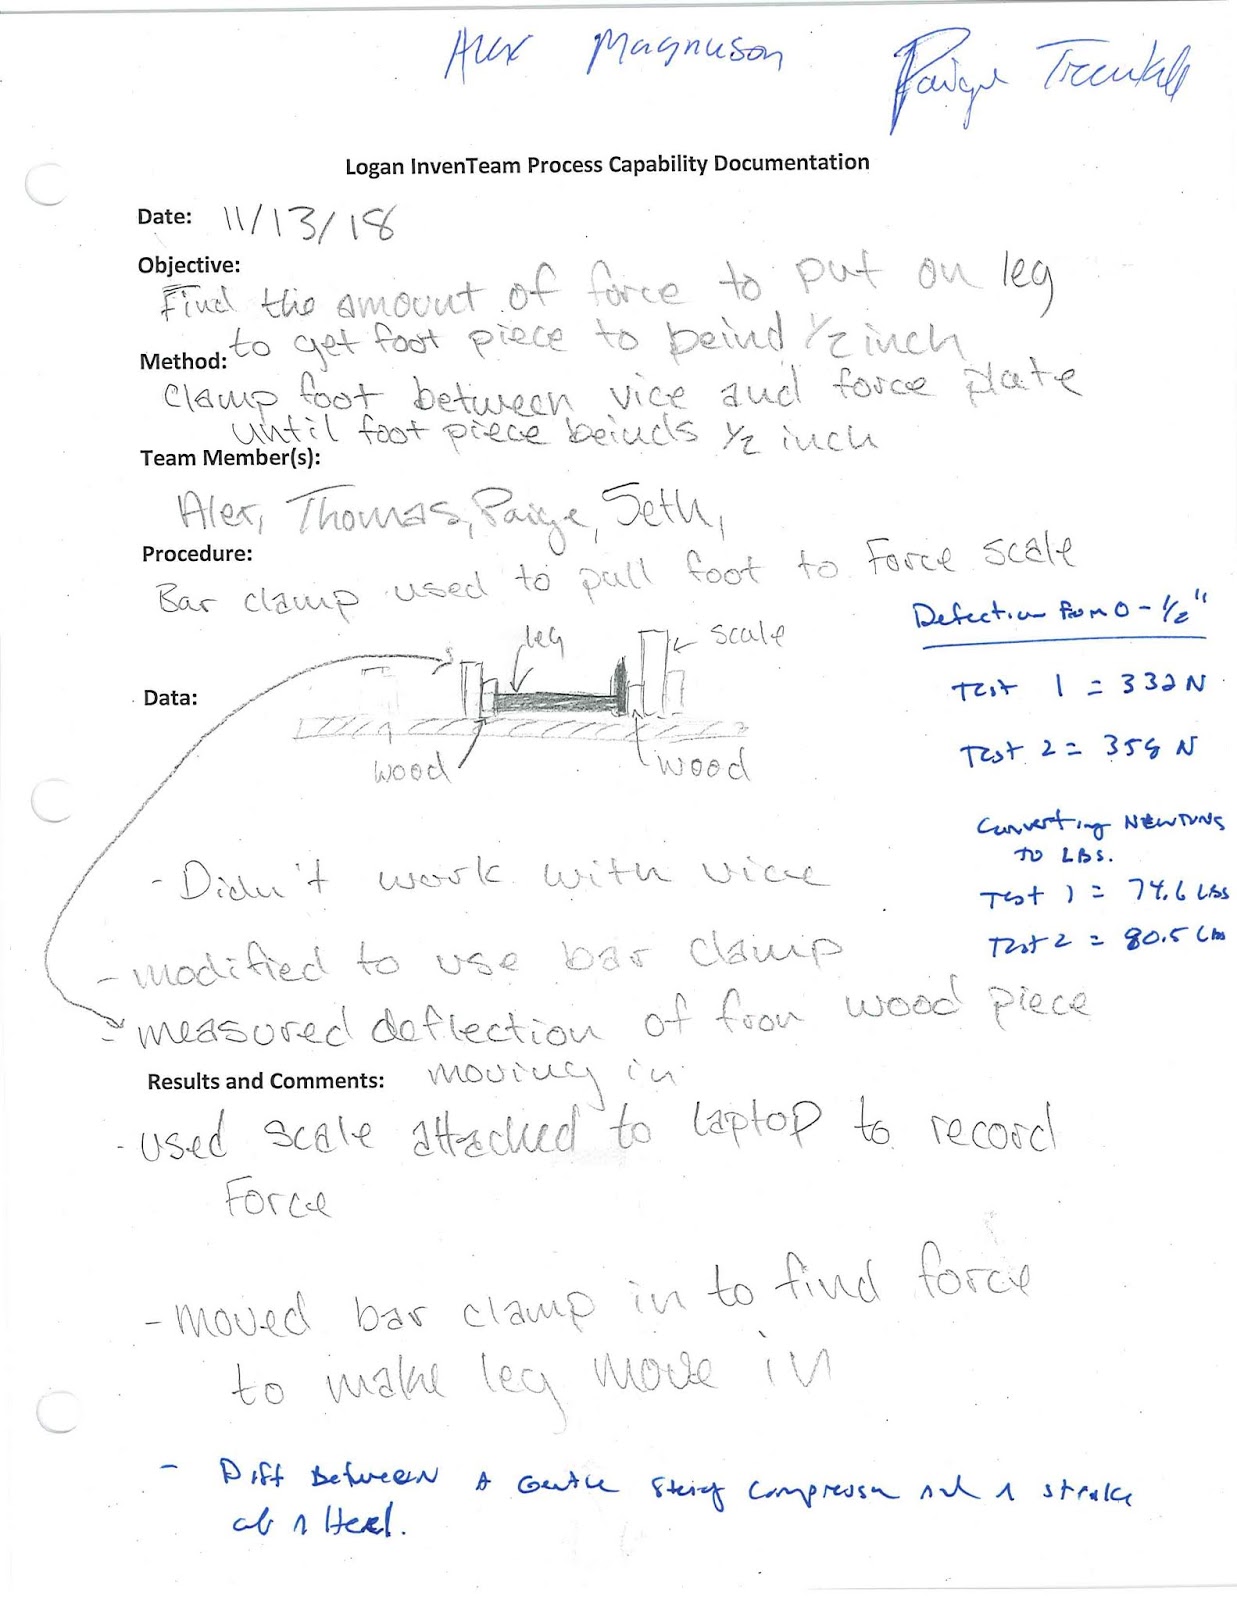 Alex Magnuson Paige
Logan InvenTeam Process Capability Documentation
Date: 11/13/18
Objective:
Find the amount of force to put on leg
to get foot piece to beind 1/2 inch
Method:
Clamp foot between vice and force plate
until foot piece beinds 1/2 inch
Team Member(s):
Alex, Thomas, Paige, Seth,
Procedure:
Bar clamp used to pull foot to Force scale
leg
scale
Data:
wood
wood
Defection from 0 - 1/2"
Test 1 = 332 N
Test 2 = 358 N
Converting NEWTONS
TO LBS.
Test 1 = 74.6 LBS
Test 2 = 80.5 Lbs
- Didn't work with vice
- modified to use bar clamp
- measured deflection of fron wood piece
moving in
Results and Comments:
- used scale attached to laptop to record
Force
- moved bar clamp in to find force
to make leg move in
- Diff Between A Gentle compression and a strike
of a Heel.